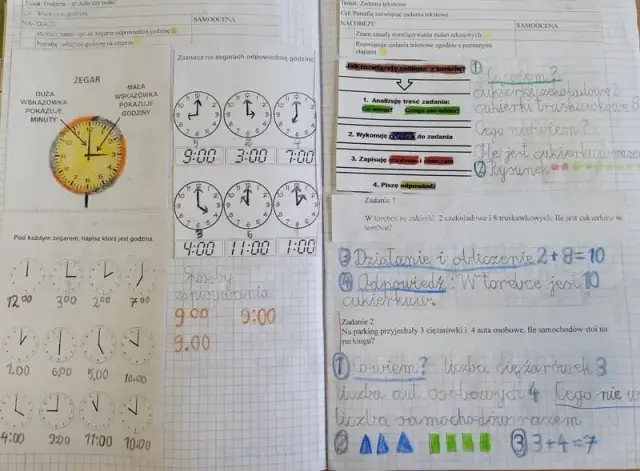 NACOBEZU
SAMOOCENA
ZEGAR
DUŻA
WSKAZÓWKA
POKAZUJE
MINUTY
MAŁA
WSKAZÓWKA
POKAZUJE
GODZINY
Pod każdym zegarem, napisz która jest godzina.
12 00 3 00 2 00 7 00
1.00 6.00 5.00 10.00
4:00 9:00 11:00 10:00
Zaznacz na zegarach odpowiednią godzinę
9:00 3:00 7:00
4:00 11:00 1:00
Sposoby
zapisywania
9 00 9:00
9.00
Temat: Zadania tekstowe
Cel: Potrafię rozwiązać zadania tekstowe
NACOBEZU
SAMOOCENA
Znam zasady rozwiązywania zadań tekstowych
Rozwiązuję zadania tekstowe zgodnie z poznanymi
etapami
1. Analizuję treść zadania:
Co wiem? Czego nie wiem?
2. Wykonuję rysunek do zadania
3. Zapisuję działanie i obliczam
4. Piszę odpowiedź
1 Co wiem?
cukierki czekoladowe 2
cukierki truskawkowe 8
Czego nie wiem?
Ile jest cukierków razem
2 Rysunek
Zadanie 1
W torebce są cukierki: 2 czekoladowe i 8 truskawkowych. Ile jest cukierków w
torebce?
3 Działanie i obliczenie 2+8=10
4 Odpowiedź: W torebce jest 10
cukierków.
Zadanie 2
Na parking przyjechały 3 ciężarówki i 4 auta osobowe. Ile samochodów stoi na
parkingu?
1 Co wiem? liczba ciężarówek 3
liczba aut osobowych 4 Czego nie w
liczba samochodów razem
2 3 3+4=7